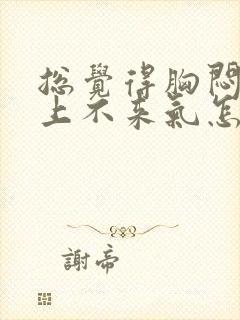 總覺得胸悶
上不來氣怎
謝帝